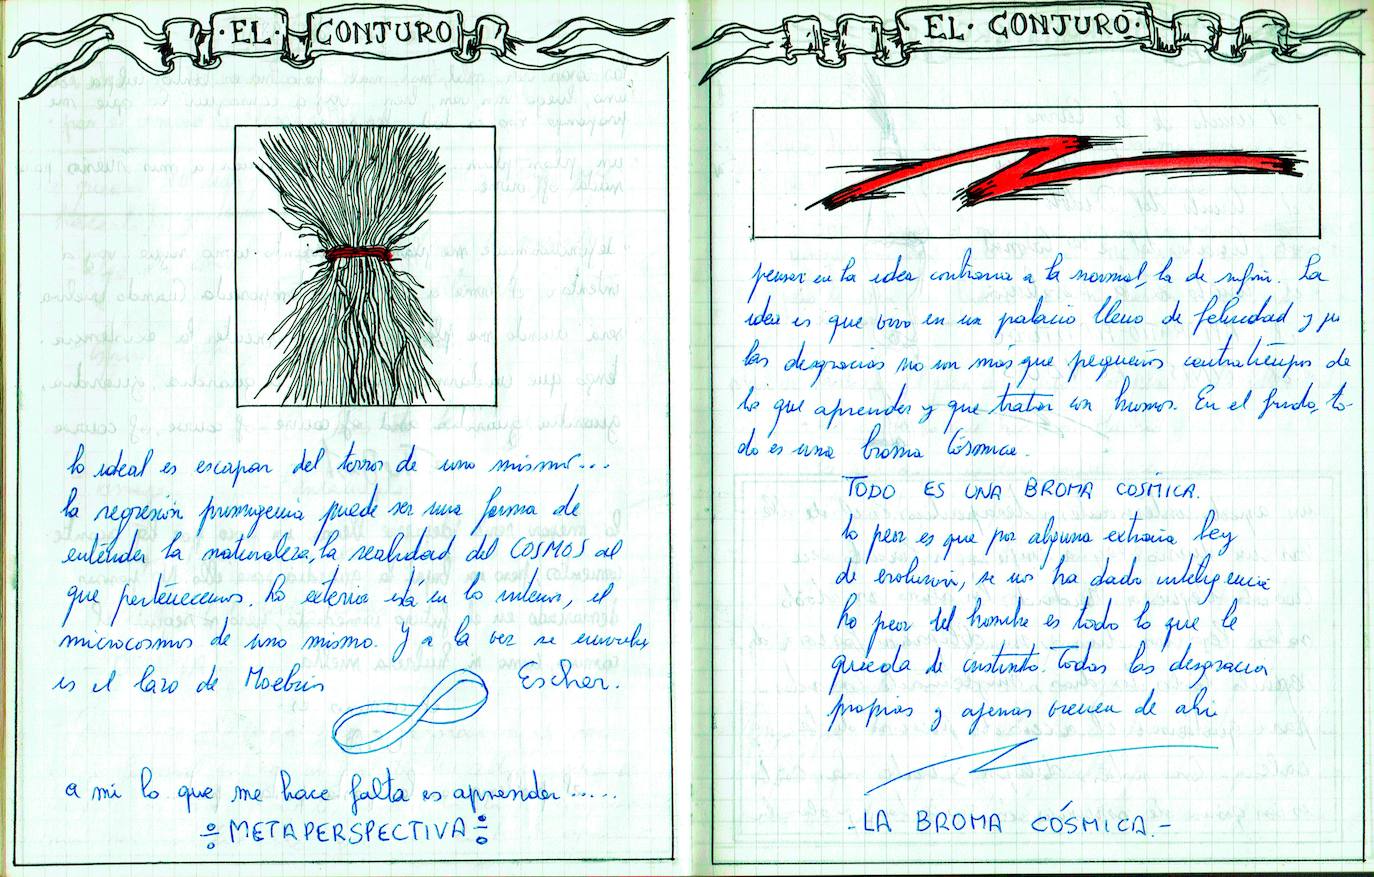 ·EL· CONJURO
lo ideal es escapar del terror de uno mismo...
la regresión primigenia puede ser una forma de
entender la naturaleza, la realidad del COSMOS al
que pertenecemos. Lo exterior está en lo interno, el
microcosmos de uno mismo. Y a la vez se
es el lazo de Moebius Escher.
a mi lo que me hace falta es aprender.....
METAPERSPECTIVA
EL· CONJURO·
pensar en la idea contraria a la normal, la de sufrir. La
idea es que vivo en un palacio lleno de felicidad y
las desgracias no son mas que pequeños contratiempos de
lo que aprender y que tratar con humor. En el fondo, to-
do es una broma Cósmica.
TODO ES UNA BROMA COSMICA.
lo peor es que por alguna extraña ley
de evolución, se nos ha dado inteligencia
Lo peor del hombre es todo lo que le
queda de instinto. Todas las desgracias
propias y ajenas vienen de ahi
-LA BROMA CÓSMICA.-